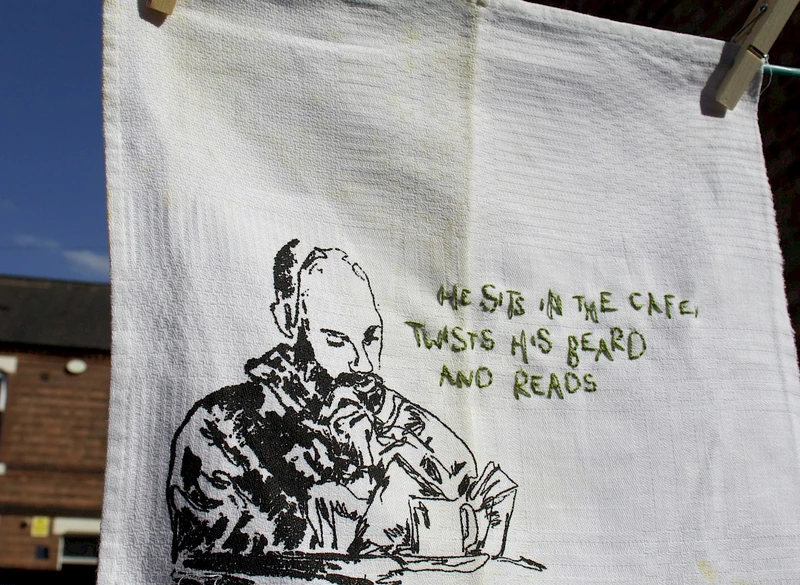 HE SITS IN THE CAFE,
TWISTS HIS BEARD
AND READS